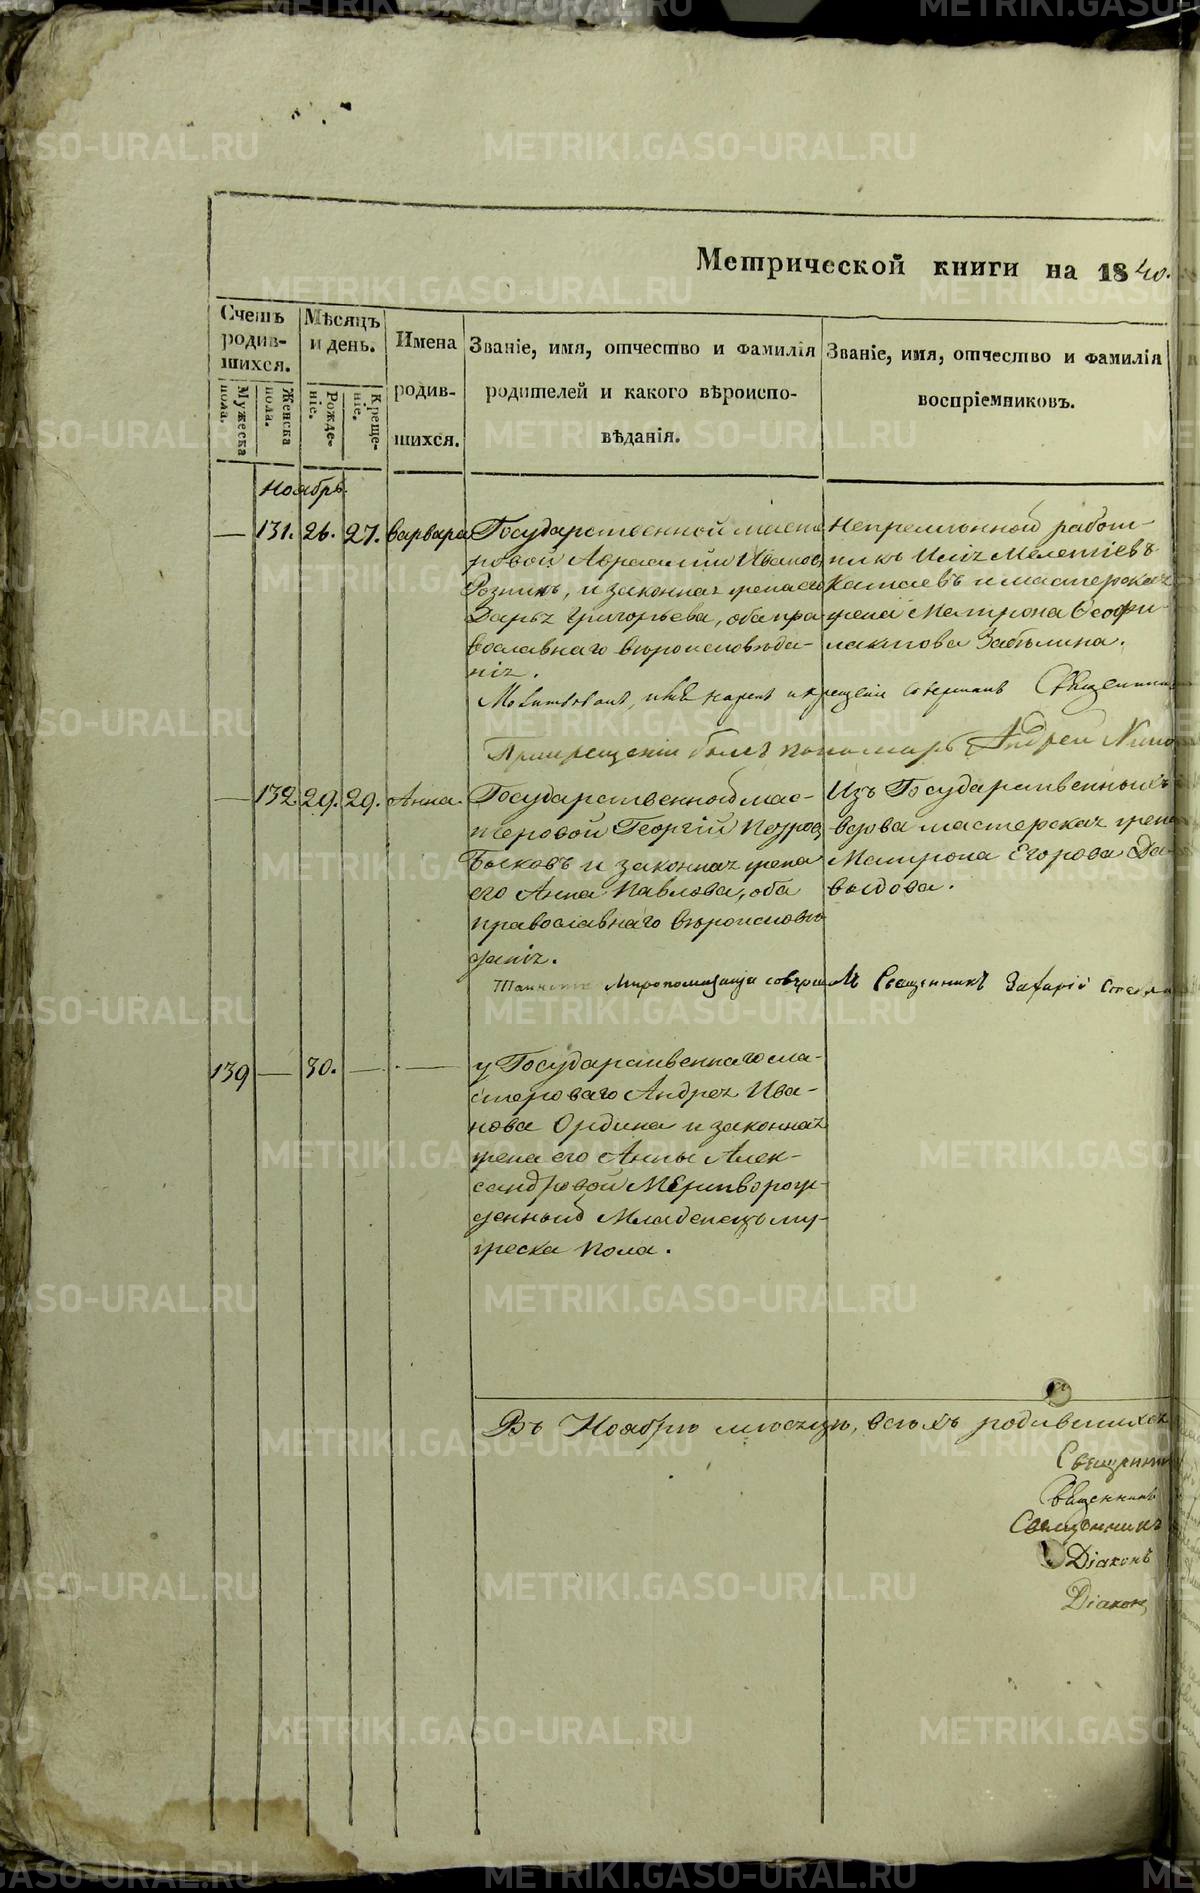 Метрической книги на 1840.
Счетъ родив- шихся.
Мужеска пола.
Женска пола.
Мѣсяцъ и день.
Рожде- ніе.
Креще- ніе.
Имена родив- шихся.
Званіе, имя, отчество и фамилія
родителей и какого вѣроиспо-
вѣданія.
Званіе, имя, отчество и фамилія
воспріемниковъ.
Ноябрь.
— 131. 26. 27. Варвара
Государственной масте
ровой Авраамій Иванов
и законная жена его
Дарья Григорьева, оба пра
вославнаго вѣроисповѣда-
нія.
Непремѣнной работ-
никъ Илія Мелетіевъ
Катаевъ и мастерская
жена Матрона Ѳеофи
лактова Забѣлина.
Молитвовалъ, имя нарекъ и крещеніе совершилъ Священникъ
При крещеніи былъ пономарь Андрей
— 132. 29. 29. Анна.
Государственной мас-
теровой Георгій Петров
Быковъ и законная жена
его Анна Павлова, оба
православнаго вѣроисповѣ
данія.
Изъ Государственныхъ
вдова мастерская жена
Матрона Егорова Да-
выдова.
Таинство Миропомазанія совершилъ Священникъ Захарій
139 — 30. — —
у Государственнаго ма-
стероваго Андрея Ива-
нова Ордина и законная
жена его Анны Алек-
сандровой Мертворож-
денный Младенецъ му-
жеска пола.
Въ Ноябрѣ мѣсяцѣ, всѣхъ родившихся
Священникъ
Священникъ
Священникъ
Діаконъ
Діаконъ
METRIKI.GASO-URAL.RU